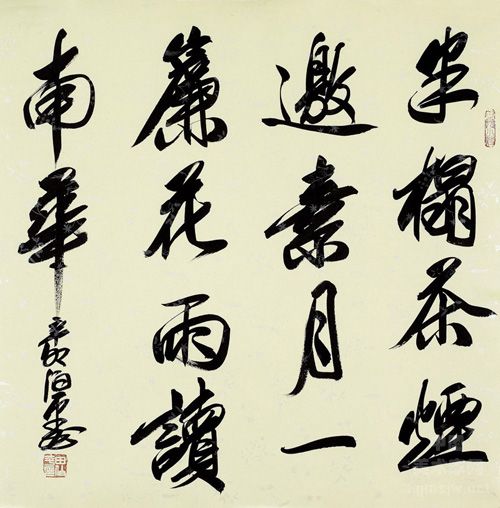 半榻茶煙
邀素月一
簾花雨讀
南華